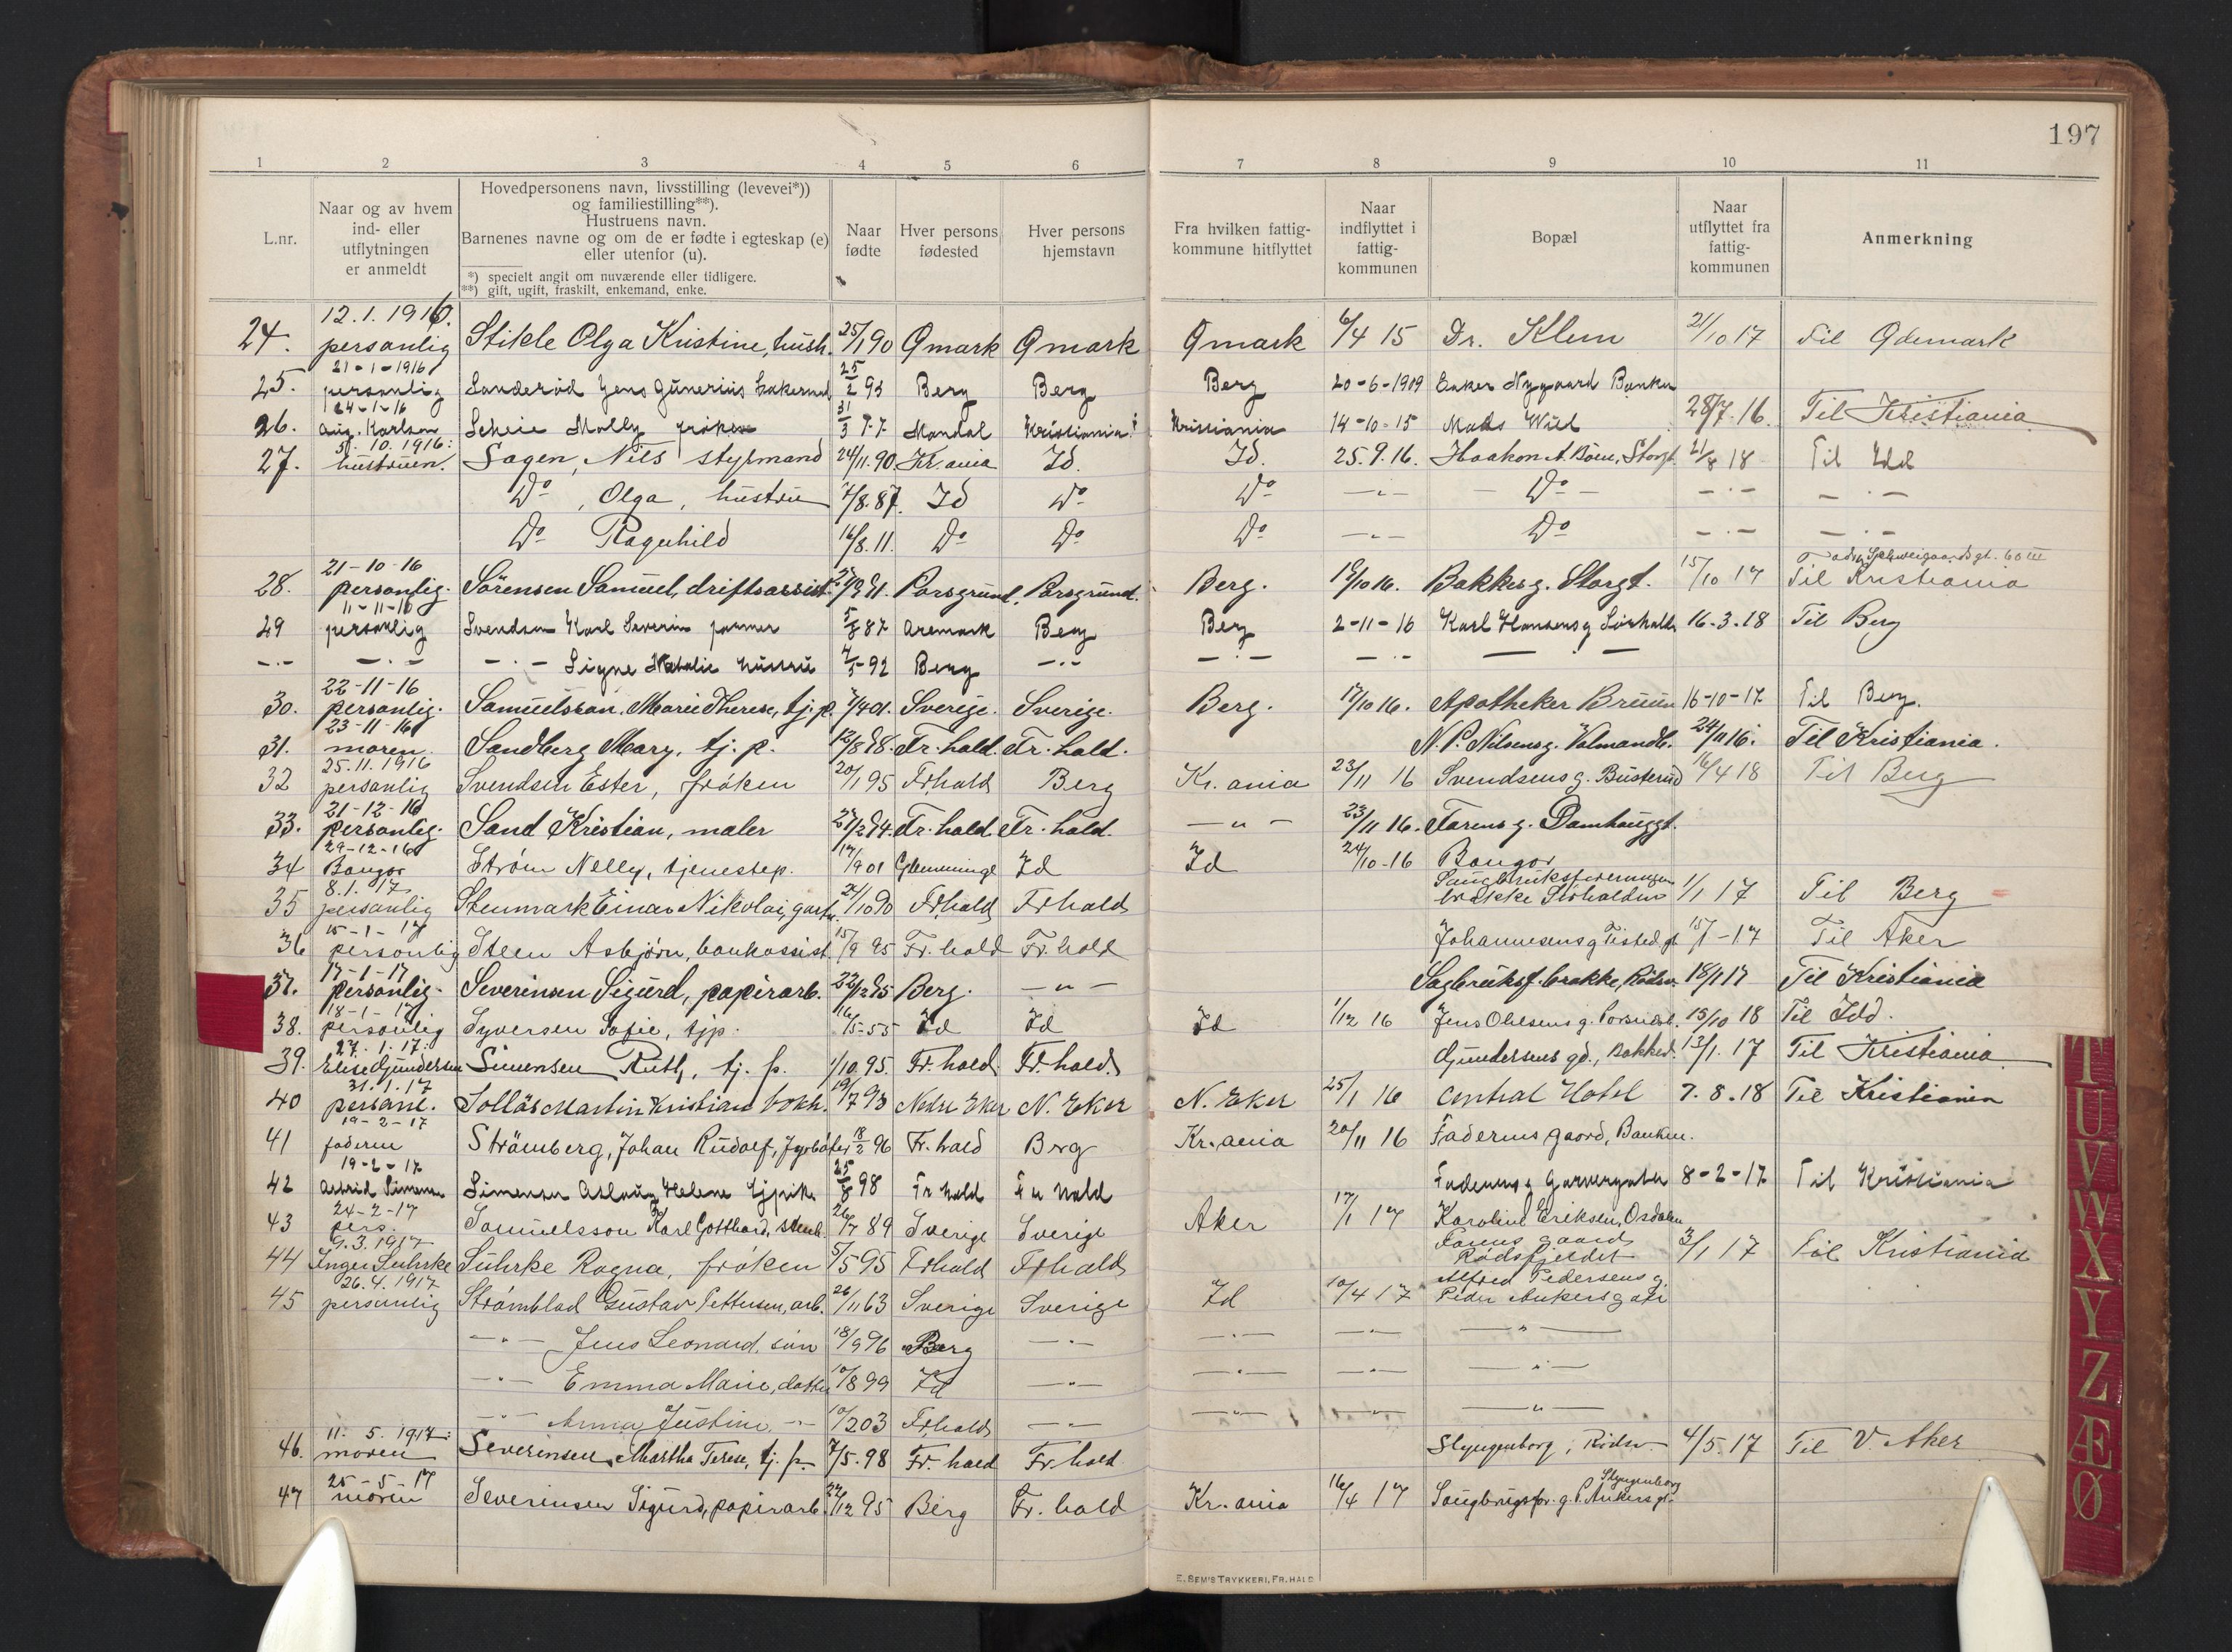 197
1 2 3 4 5 6 7 8 9 10 11
L.nr.
Naar og av hvem
ind- eller
utflytningen
er anmeldt
Hovedpersonens navn, livsstilling (levevei*))
og familiestilling**).
Hustruens navn.
Barnenes navne og om de er fødte i egteskap (e)
eller utenfor (u).
*) specielt angit om nuværende eller tidligere.
**) gift, ugift, fraskilt, enkemand, enke.
Naar
fødte
Hver persons
fødested
Hver persons
hjemstavn
Fra hvilken fattig-
kommune hitflyttet
Naar
indflyttet i
fattig-
kommunen
Bopæl
Naar
utflyttet fra
fattig-
kommunen
Anmerkning
12.1.1916.
24. personlig Stikle Olga Kristine, hush. 25/1 90 Ømark Ømark Ømark 6/4 15 Dr. Klem 21/10 17 Til Ødemark
21-1-1916
25. personlig Sanderød Jens Gunerius 25/2 93 Berg Berg Berg 20-6-1909 Enker Nygaard Banken
24-1-16
26. Aug. Karlsen Scheie Molly frøken 31/3 77 Mandal Kristiania Kristiania 14-10-15 Mads Wiel 28/7.16. Til Kristiania
10.1916:
27. hustruen. Sagen, Nils styrmand 24/11.90. Kr.ania Id. Id. 25.9.16. Haakon A. Storgt. 21/8 18 Til Idd
Do , Olga, hustru 7/8.87. Id Do Do -"- - Do - -"- -"-
Do Ragnhild 16/8.11. Do Do Do -"- Do -"- -"-
21-10-16 adr. Schweigaardsgt. 60 III
28. personlig. Sørensen Samuel, driftsassist. Porsgrund. Porsgrund. Berg. 19/10 16. Bakkesg. Storgt. 15/10 17 Til Kristiania
11-11-16
29 personlig Svendsen Karl Severin former 5/8 87 Aremark Berg Berg 2-11-16 Karl Hansens g Sørhalden 16-3.18 Til Berg
-"- -"- -"- Signe Natalie hustru 4/5-92 Berg -"- -"- -"- — —
22-11-16
30. personlig. Samuelsson. Marie Therese, tj.p. 7/4 01. Sverige. Sverige. Berg. 17/10 16. Apotheker Bruun 16-10-17 Til Berg.
23-11-16
31. moren. Sandberg Mary, tj. p. 12/8 98. Fr.hald. Fr.hald. N.P. Nilsens g. Volmandb. 24/11 16. Til Kristiania.
25.11.1916
32 personlig Svendsen Ester, frøken 20/1 95 Frhald Berg Kr.ania 23/11 16 Svendsens g. Busterud 16/4 18 Til Berg
21-12-16
33. personlig. Sand Kristian, maler 27/2 94. Fr.hald. Fr.hald. -"- 23/11 16. Torens g. Damhauggt.
29-12-16
34 Bangor Strøm Nelly, tjenestep. 17/9 01 Glemminge Id Id 24/10-16 Bangor
8.1.17 Saugbruksforeningen
35 personlig Stenmark Einar Nikolai, gartn. 24/10 90 Frhald Frhald brakke Sørhalden 1/1 17 Til Berg
15-1-17
36 personlig Steen Asbjørn, bankassist. 15/9 95 Fr.hald Fr.hald Johannesens g Tistedgt. 15/1-17 Til Aker
17-1-17
37. personlig. Severinsen Sigurd, papirarb. 22/12 95 Berg. -"- Sagbruksf. brakke, Rødsv. 18/1 17 Til Kristiania
18-1-17
38. personlig Syversen Sofie, tjp. 16/5-55 Id Id Id 1/12 16 Jens Ohlsens g. 15/10 18 Til Idd.
27.1.17:
39. Elise Gundersen Simensen Ruth, tj. p. 1/10.95. Fr.hald. Fr.hald. Gundersens gd., Bakked. 13/1.17 Til Kristiania
31.1.17
40 personl. Sollås Martin Kristian bokh. 19/7 93 Nedre Eker N. Eker N. Eker 25/1 16 Central Hotel 7.8.18 Til Kristiania
19-2-17
41 faderen Strömberg, Johan Rudolf, fyrbøter 18/2 96 Fr.hald Berg Kr.ania 20/11 16 Faderens gaard, Banken.
19-2-17
42 Astrid Simensen Simensen Aslaug Helene tjpike 25/8 98 Fr hald Fr hald Faderens g Garvergaten 8-2-17 Til Kristiania
24-2-17
43 pers. Samuelsson Karl Gotthard, stenh. 26/7 89 Sverige Sverige Aker 17/1 17 Karoline Eriksen, Osdalen
9.3.1917 Farens gaard
44 Inger Suhrke Suhrke Ragna, frøken 5/5 95 Frhald Frhald Rødsfjeldet 3/1 17 Til Kristiania
26.4.1917 Alfred Pedersens g.
45 personlig Strömblad Gustav Pettersen, arb. 26/11 63 Sverige Sverige Id 10/4 17 Peder Ankers gate
-"- Jens Leonard, søn 18/9 96 Berg -"- -"- -"- -"-
-"- Emma Marie, datter 10/8 99 Id -"- -"- -"- -"-
-"- Anna Justine -"- 10/2 03 Frhald -"- -"- -"- -"-
11.5.1917:
46. moren Severinsen, Martha Terese, tj. p. 7/5.98 Fr.hald Fr.hald Slyngenborg, Rødsv. 4/5.17 Til V. Aker
25-5-17 Slyngenborg
47 moren Severinsen Sigurd, papirarb. 22/12 95 Berg Fr.hald Kr.ania 16/4 17 Saugbrugsfor. g. P. Ankersgt.
E. SEM'S TRYKKERI, FR.HALD
T
U
V
W
X
Y
Z
Æ
Ø